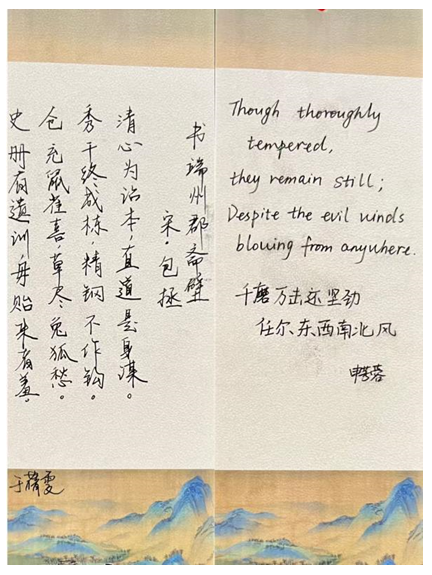 书端州郡斋壁
宋·包拯
清心为治本,直道是身谋。
秀干终成栋,精钢不作钩。
仓充鼠雀喜,草尽兔狐愁。
史册有遗训,毋贻来者羞。
Though thoroughly
tempered,
they remain still;
Despite the evil winds
blowing from anywhere.
千磨万击还坚劲
任尔东西南北风